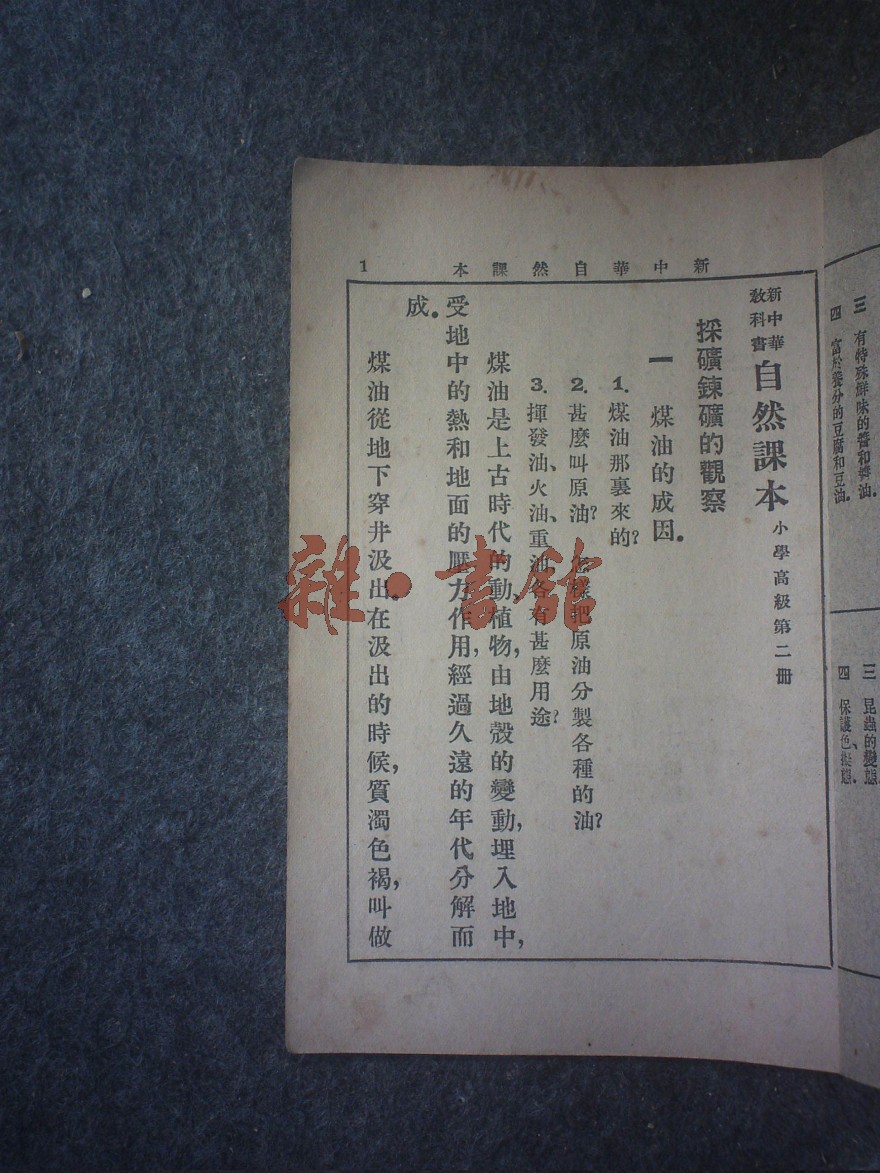 三 有特殊鮮味的醬和醬油.
四 富於養分的豆腐和豆油.
三 昆蟲的變態.
四 保護色、擬態.
新中華自然課本 1
新中華
教科書
自然課本 小學高級第二冊
採礦鍊礦的觀察
一 煤油的成因.
1. 煤油那裏來的?
2. 甚麼叫原油? 怎樣把原油分製各種的油?
3. 揮發油、火油、重油各有甚麼用途?
煤油是上古時代的動、植物,由地殼的變動,埋入地中,
受地中的熱和地面的壓力作用,經過久遠的年代,分解而
成.
煤油從地下穿井汲出.在汲出的時候,質濁色褐,叫做
雜·書館